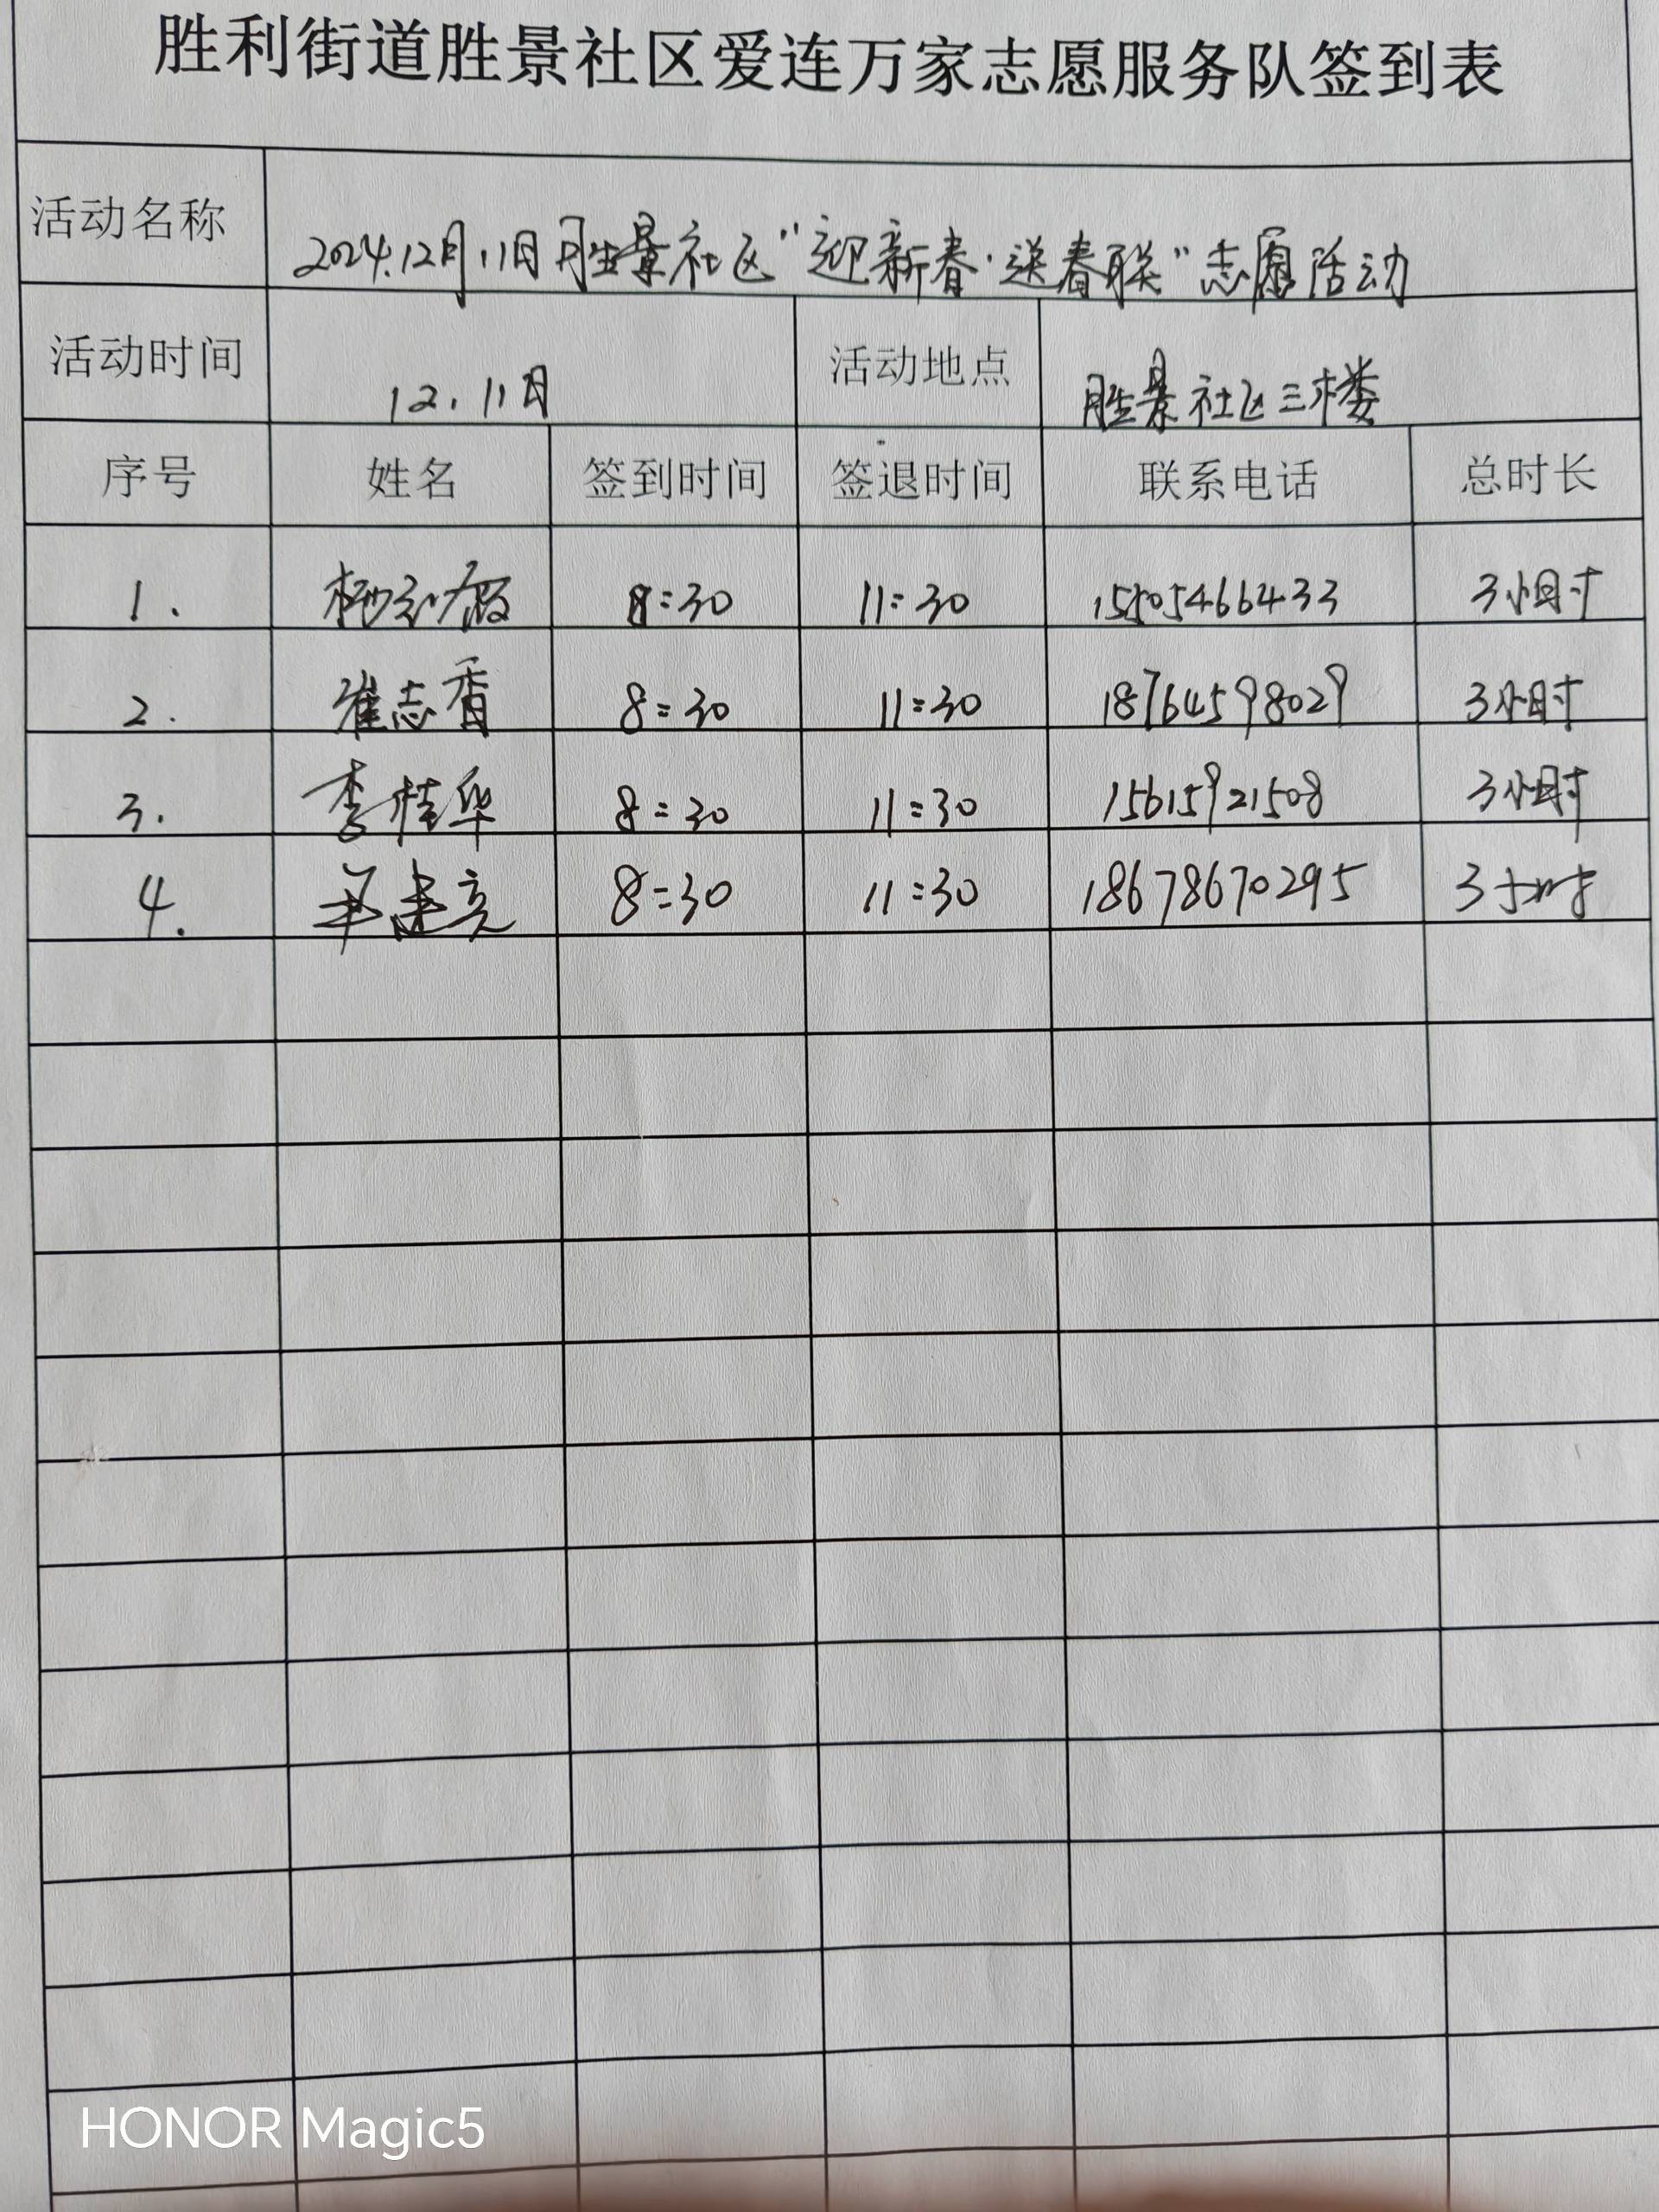 胜利街道胜景社区爱连万家志愿服务队签到表
活动名称 2024.12月.11日胜景社区"迎新春·送春联"志愿活动
活动时间 12.11日 活动地点 胜景社区三楼
序号 姓名 签到时间 签退时间 联系电话 总时长
1. 8:30 11:30 15505466433 3小时
2. 崔志香 8:30 11:30 18764598029 3小时
3. 李桂华 8:30 11:30 15615921508 3小时
4. 建亮 8:30 11:30 18678670295 3小时
HONOR Magic5